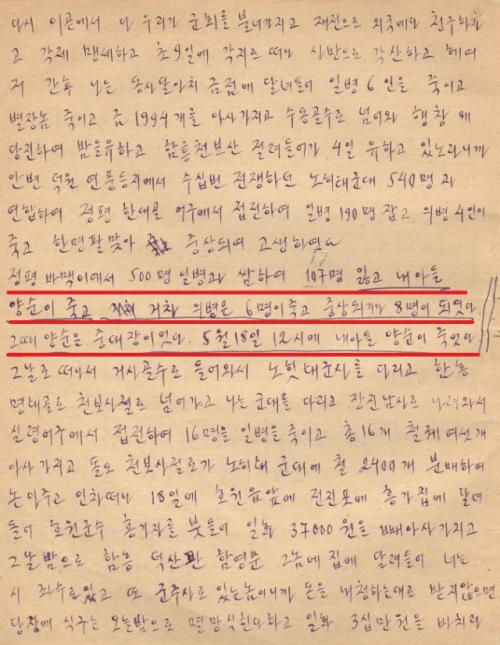 다시 이곤에서 다 우리가 군회를 불너가지고 재전으로 외국에와 친구하자
고 각제 맨세하고 초9일에 각지로 떠나 신방으로 각산하고 헤여
저 간후 나는 동사달아치 금점에 달녀들어 일병 6인을 죽이고
별장놈 죽이고 금 1994개를 아사가지고 수동골수로 넘어와 행창
당진하여 밤을유하고 함흥천보산 절려들어가 4일 유하고 있노라니까
안변 덕원 연풍등지에서 수십번 전쟁하던 노희태군대 540명과
연합하여 정평 한대골 어구에서 접전하여 일병 190명 잡고 의병 4인이
죽고 한명팔맞아 중상되여 고생하엿다
정평 바맥이에서 500명 일병과 쌈하여 107명 잃고 내아들
양순이 죽고 거차 의병은 6명이죽고 중상되기가 8명이 되엿다
그때 양순은 중대장이잇다. 5월18일 12시에 내아들 양순이 죽엇다
그날로 떠나서 거사골수로 들어와서 노힛태군사를 다리고 한흥
명태골로 천보사절로 넘어가고 나는 군대를 다리고 장진남사로 나려와서
실령어구에서 접전하여 16명을 일병을 죽이고 총16개 철궤 여섯개
아사 가지고 돌오 천봇사절로가 노히태 군대에 철 2400개 분배하여
논아주고 인차떠나 18일에 호원읍앞에 전진포에 흥가집에 달녀
들어 호원군수 흥가자를 붓들어 일화 37000원을 빼아사가지고
그날밤으로 함흥 덕산 함영문 그놈에집에 달려들어 너는
시 좌수로있고 또 군주사로 있는놈이니까 돈을 내청하는대로 받지않으면
당장에 식구는 오늘밤으로 멸망식힌다하고 일화 3십만원을 바치라